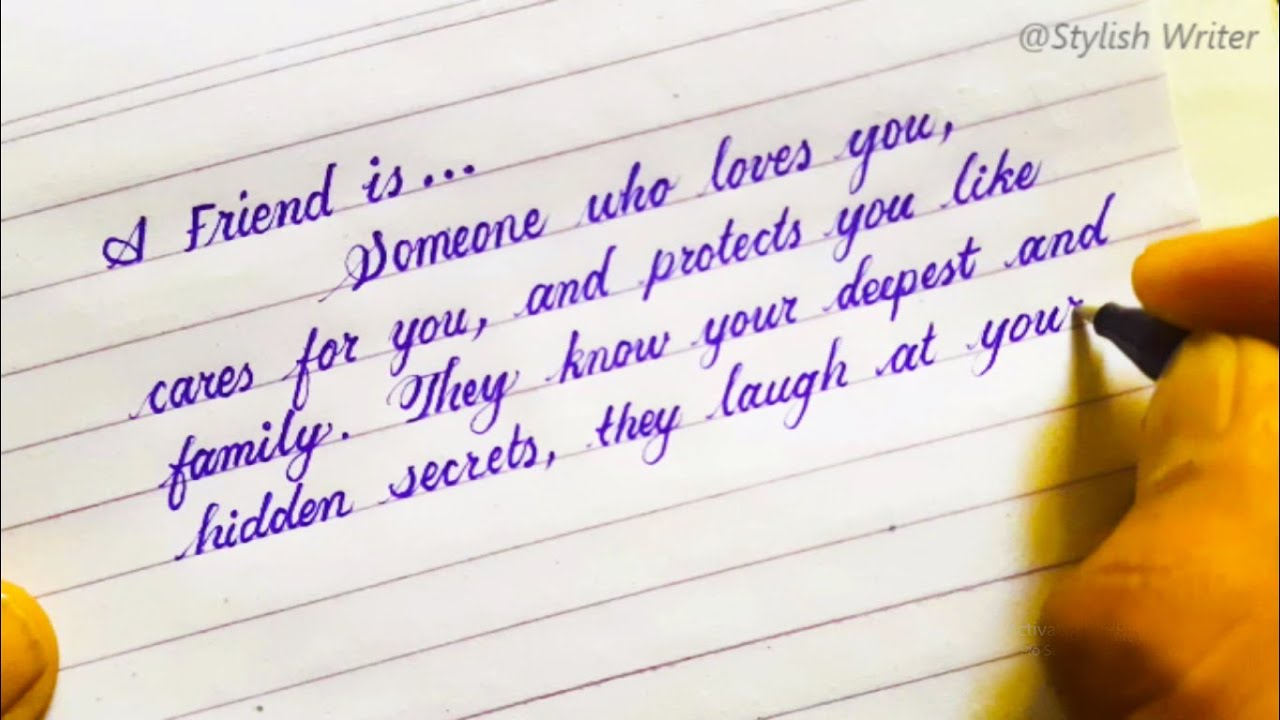 @Stylish Writer
A Friend is...
Someone who loves you,
cares for you, and protects you like
family. They know your deepest and
hidden secrets, they laugh at your